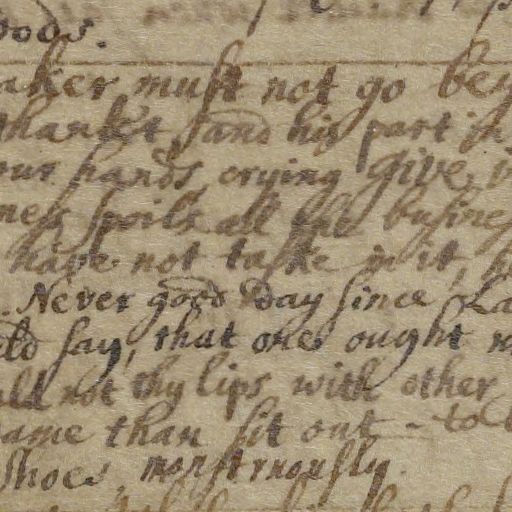 oods.
aker must not go bey
thanket, and his part in
our hands, crying give,
ness spoils all the busines
have not taske in it,
. Never good Day since La
old say, that one ought n
ald not thy lips with other
ame than sit out - to
shoes, monstruously.